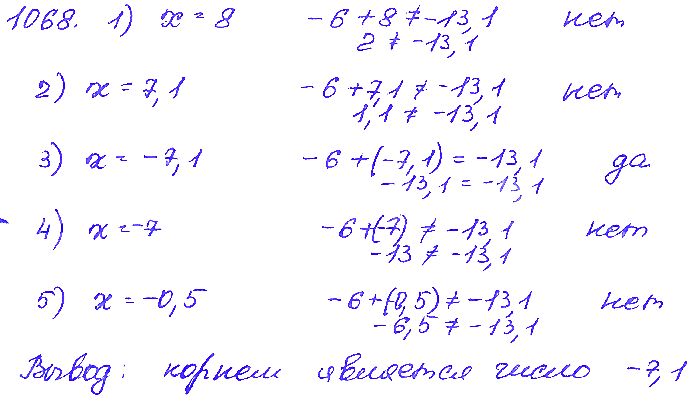 1068. 1) x = 8 -6 + 8 ≠ -13,1 нет
2 ≠ -13,1
2) x = 7,1 -6 + 7,1 ≠ -13,1 нет
1,1 ≠ -13,1
3) x = -7,1 -6 + (-7,1) = -13,1 да
-13,1 = -13,1
4) x = -7 -6 + (-7) ≠ -13,1 нет
-13 ≠ -13,1
5) x = -0,5 -6 + (0,5) ≠ -13,1 нет
-6,5 ≠ -13,1
Вывод: корнем является число -7,1